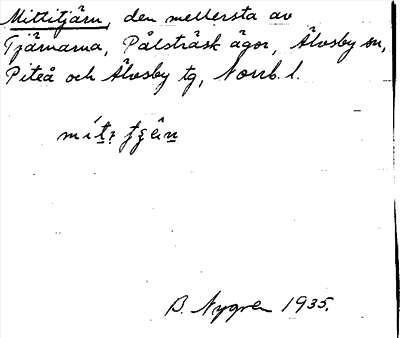 Mittitjärn, den mellersta av
Tjärnarna, Pålsträsk ägor, Älvsby sn,
Piteå och Älvsby tg, Norrb. l.
B. Nygren 1935.